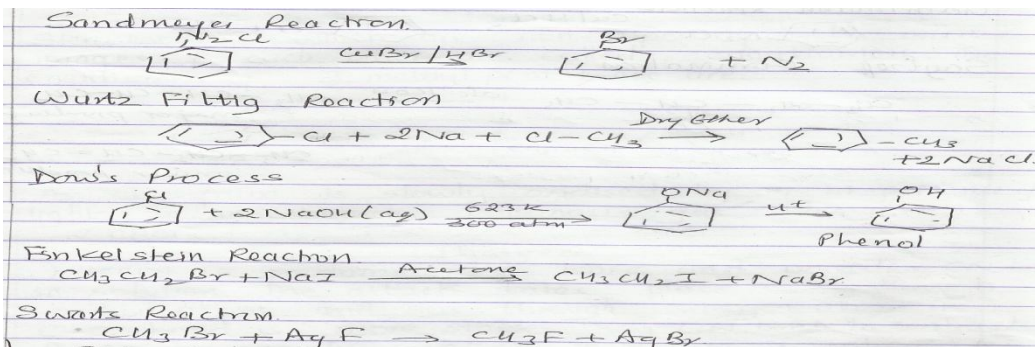 Sandmeyer Reaction
N2Cl CuBr/HBr Br + N2
Wurtz Fittig Reaction
Cl + 2Na + Cl-CH3 Dry Ether -CH3
+2NaCl
Dow's Process
Cl + 2NaOH(aq) 623K 300 atm ONa H+ OH
Phenol
Finkelstein Reaction
CH3CH2Br + NaI Acetone CH3CH2I + NaBr
Swarts Reaction
CH3Br + AgF → CH3F + AgBr